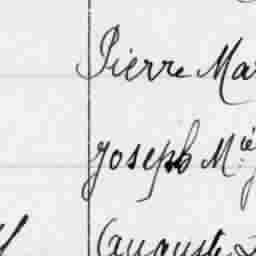 Pierre Mar
Joseph M.ié
(auguste